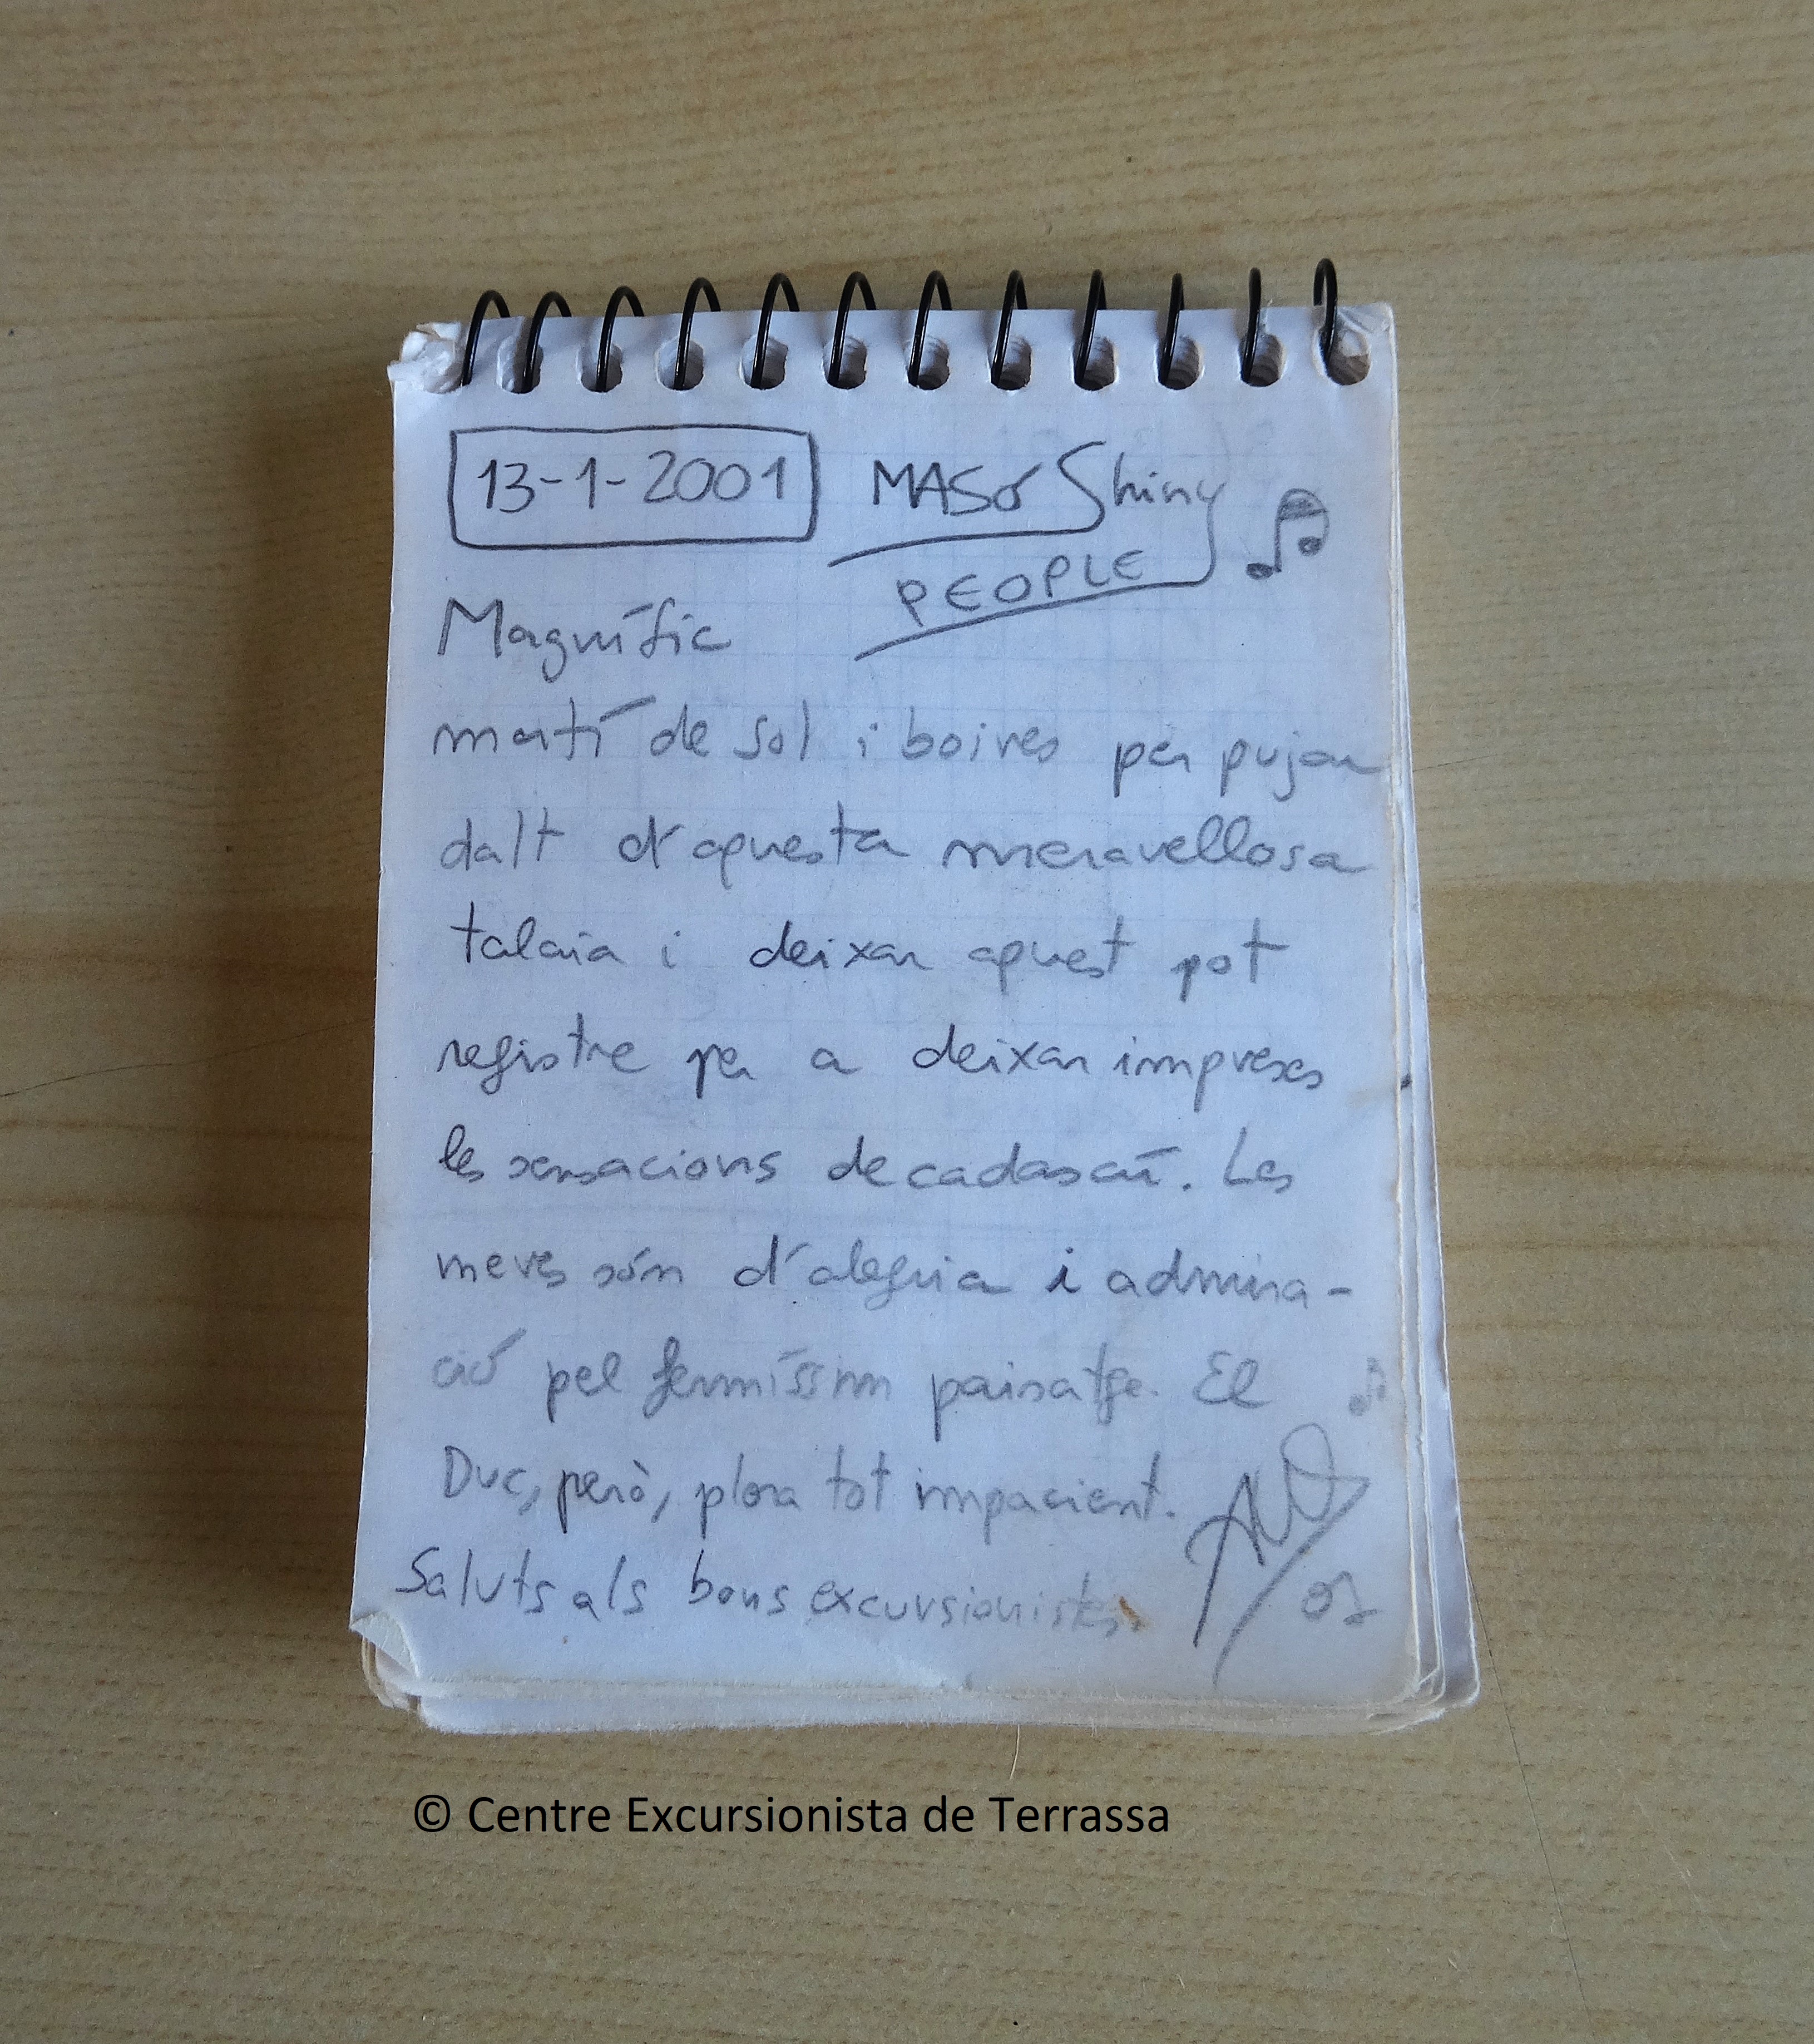 13-1-2001 MASó Shiny
PEOPLE
Magnífic
matí de sol i boires per pujar
dalt d'aquesta meravellosa
talaia i deixar aquest pot
registre per a deixar impreses
les sensacions de cadascú. Les
meves són d'alegria i admira-
ció pel fermíssim paisatge. El
Duc, però, plora tot impacient.
Saluts als bons excursionistes.
© Centre Excursionista de Terrassa